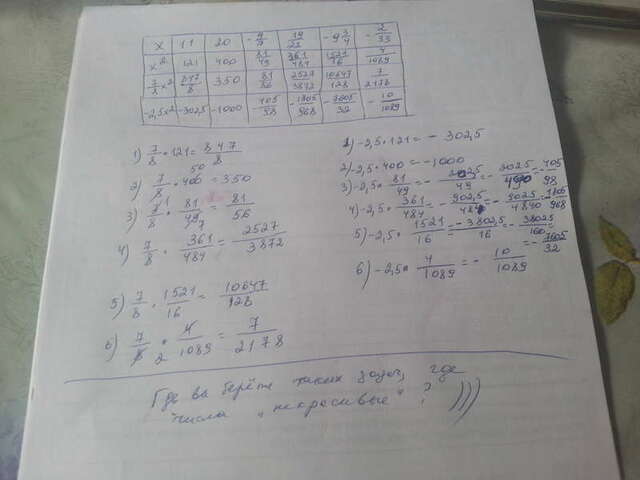 x 11 20 -9/7 19/22 -9 3/4 -2/33
x² 121 400 81/49 361/484 1521/16 4/1089
7/8x² 847/8 350 81/56 2527/3872 10647/128 7/2178
-2,5x² -302,5 -1000 -405/98 -1805/968 -7605/32 -10/1089
1) 7/8 · 121 = 847/8
2) 7/8 · 400 = 350
50
3) 7/8 · 81/49 = 81/56
4) 7/8 · 361/484 = 2527/3872
5) 7/8 · 1521/16 = 10647/128
6) 7/8 · 4/1089 = 7/2178
1) -2,5 · 121 = -302,5
2) -2,5 · 400 = -1000
3) -2,5 · 81/49 = -202,5/49 = -2025/490 = -405/98
4) -2,5 · 361/484 = -902,5/484 = -9025/4840 = -1805/968
5) -2,5 · 1521/16 = -3802,5/16 = -38025/160 =
= -7605/32
6) -2,5 · 4/1089 = -10/1089
Где вы берёте таких задач, где
числа "некрасивые" ? )))